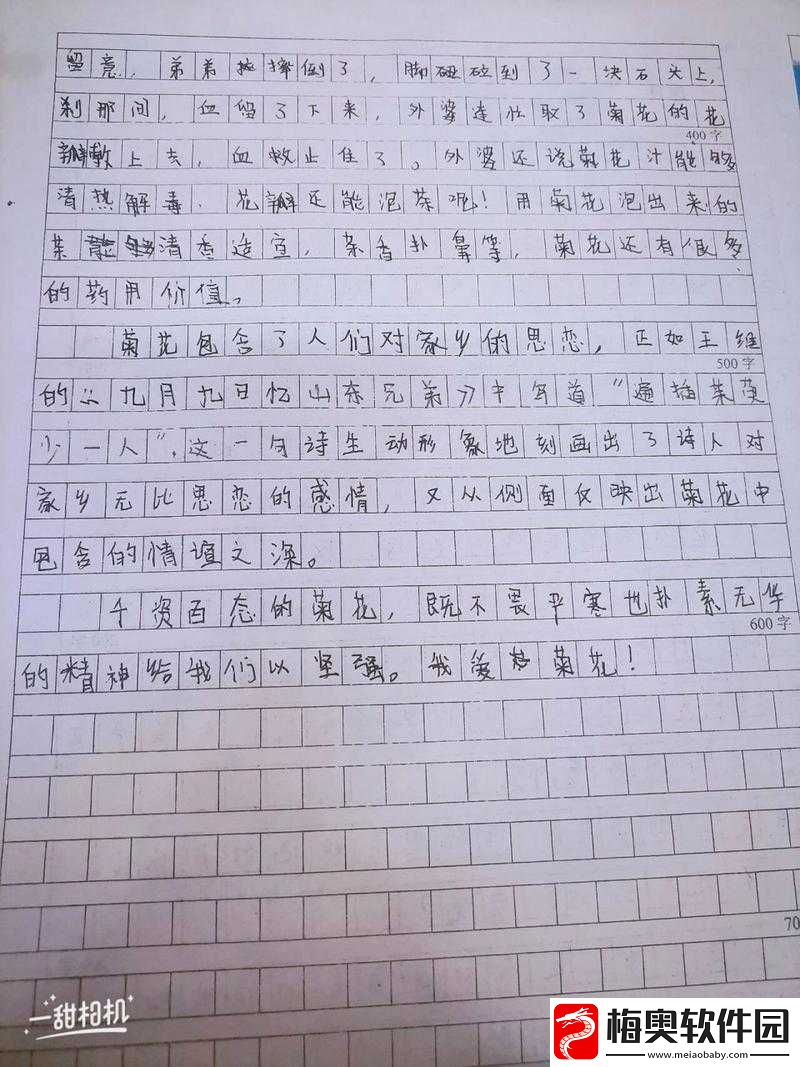 留意，弟弟摔倒了，脚碰碰到了一块石头上，
刹那间，血留了下来，外婆连忙取了菊花的花
400字
瓣敷上去，血就止住了。外婆还说菊花汁能够
清热解毒．花瓣还能泡茶呢！用菊花泡出来的
茶清香适宜，茶香扑鼻等，菊花还有很多
的药用价值。
菊花包含了人们对家乡的思恋，正如王维
500字
的《九月九日忆山东兄弟》中写道"遍插茱萸
少一人"．这一句诗生动形象地刻画出了诗人对
家乡无比思恋的感情，又从侧面仅映出菊花中
包含的情谊之深。
千资百态的菊花，既不畏平寒也扑素无华
600字
的精神给我们以坚强。我爱菊花！
70
一甜相机
梅奥软件园
www.meiaobaby.com